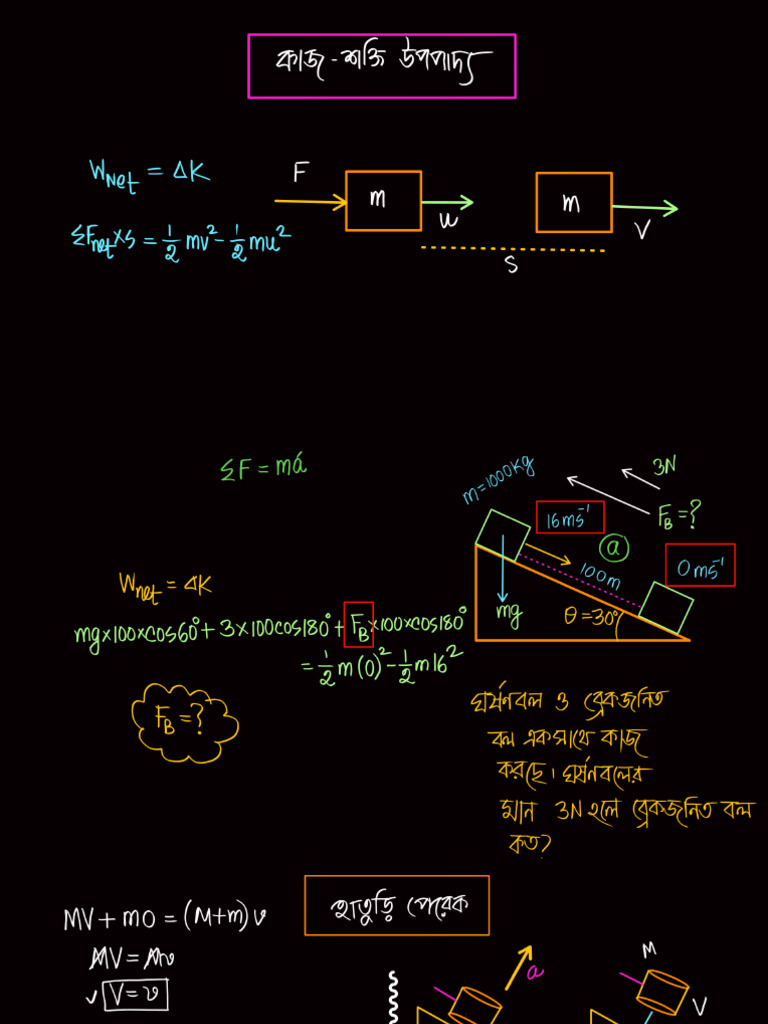 কাজ-শক্তি উপপাদ্য
W_Net = ΔK
F
m
u
m
v
s
ΣF_net×s = ½mv² - ½mu²
ΣF = ma
m=1000kg
3N
16ms⁻¹
F_B = ?
a
0ms⁻¹
100m
mg
θ=30°
W_net = ΔK
mg×100×cos60° + 3×100cos180° + F_B×100×cos180°
= ½m(0)² - ½m16²
F_B = ?
ঘর্ষণবল ও ব্রেকজনিত
বল একসাথে কাজ
করছে। ঘর্ষণবলের
মান 3N হলে ব্রেকজনিত বল
কত?
হাতুড়ি পেরেক
MV + m0 = (M+m)v
MV = Mv
V = v
a
M
V